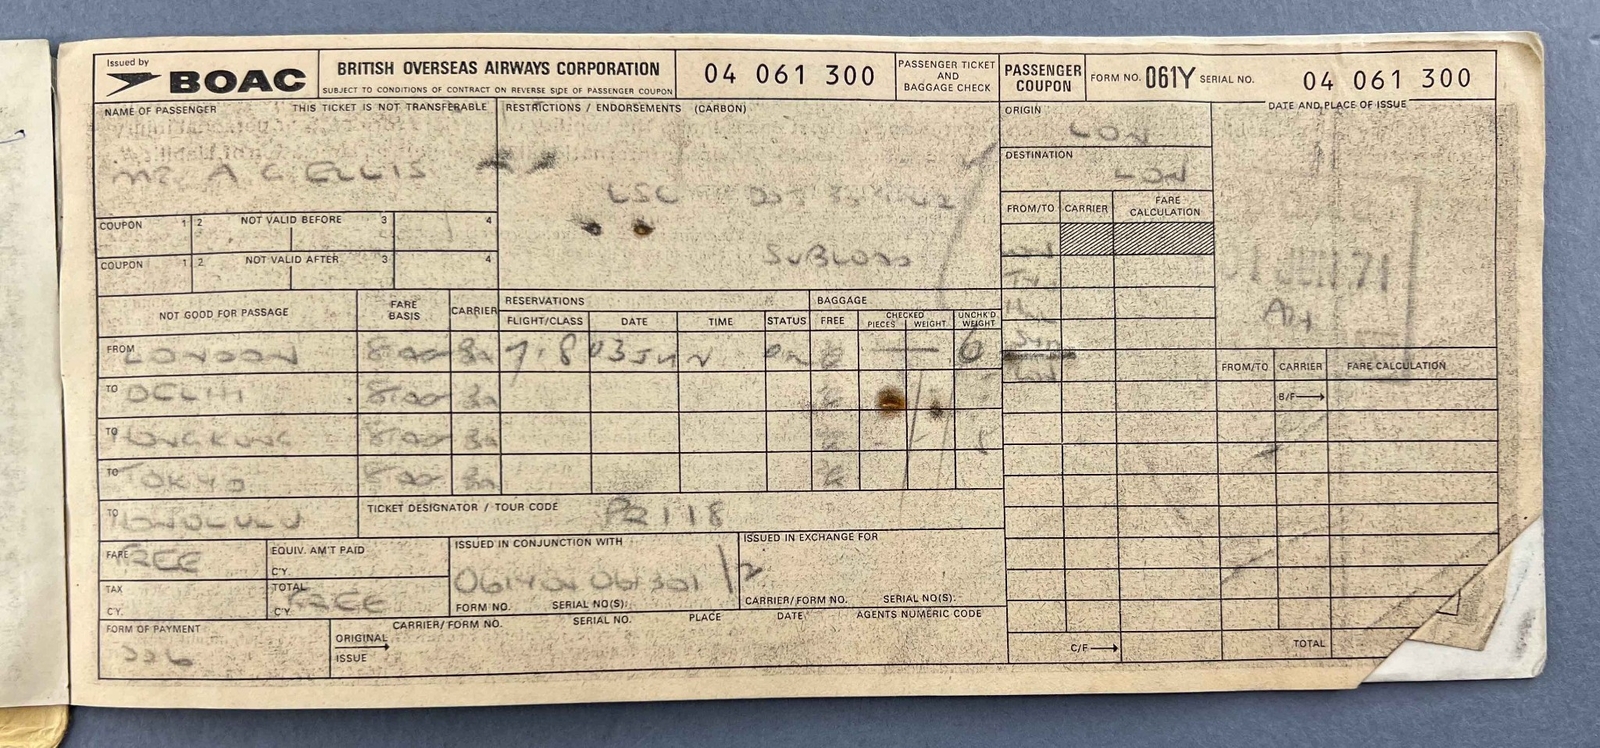 Issued by
BOAC
BRITISH OVERSEAS AIRWAYS CORPORATION
SUBJECT TO CONDITIONS OF CONTRACT ON REVERSE SIDE OF PASSENGER COUPON
04 061 300
PASSENGER TICKET AND BAGGAGE CHECK
PASSENGER COUPON
FORM NO. 061Y SERIAL NO. 04 061 300
NAME OF PASSENGER THIS TICKET IS NOT TRANSFERABLE
MR. A C ELLIS
RESTRICTIONS / ENDORSEMENTS (CARBON)
SUBLOAD
ORIGIN
LON
DESTINATION
LON
DATE AND PLACE OF ISSUE
JUN 71
COUPON 1 2 NOT VALID BEFORE 3 4
COUPON 1 2 NOT VALID AFTER 3 4
FROM/TO CARRIER FARE CALCULATION
NOT GOOD FOR PASSAGE FARE BASIS CARRIER
RESERVATIONS
FLIGHT/CLASS DATE TIME STATUS
BAGGAGE
FREE CHECKED PIECES WEIGHT UNCHK'D WEIGHT
FROM LONDON 03 JUN 6
TO DELHI
TO HONGKONG
TO TOKYO
TO HONOLULU
TICKET DESIGNATOR / TOUR CODE
FROM/TO CARRIER FARE CALCULATION
B/F
FARE FREE
EQUIV. AM'T PAID
C'Y.
TAX
C'Y.
TOTAL FREE
C'Y.
ISSUED IN CONJUNCTION WITH
FORM NO. SERIAL NO(S).
ISSUED IN EXCHANGE FOR
CARRIER/FORM NO. SERIAL NO(S).
FORM OF PAYMENT
ORIGINAL ISSUE
CARRIER/FORM NO. SERIAL NO. PLACE DATE AGENTS NUMERIC CODE
C/F
TOTAL